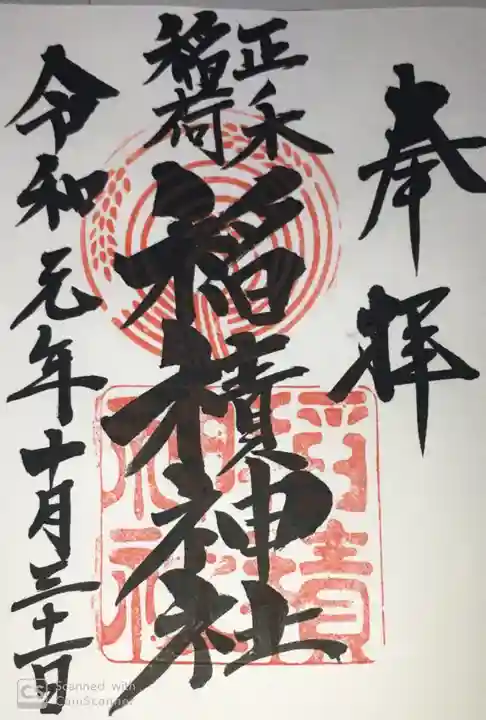 奉拝
正木
稲荷
稲積神社
稲積
神社
令和元年十月三十一日
CS Scanned with
CamScanner